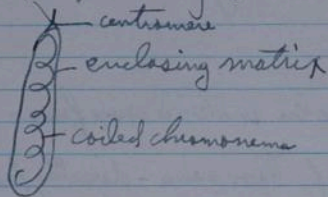 centromere
enclosing matrix
coiled chromonema